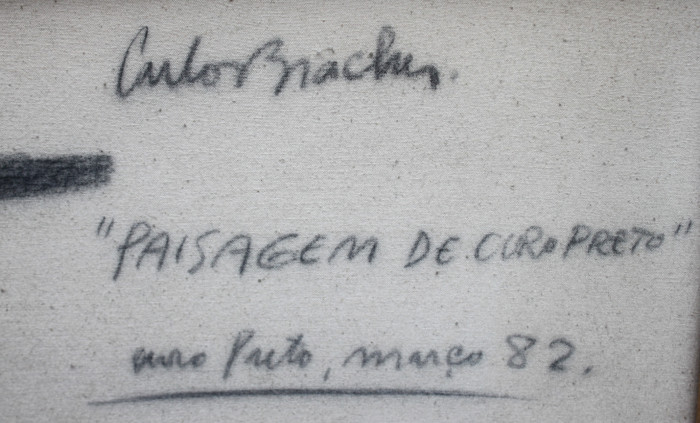 Carlos Bracher.
"PAISAGEM DE OURO PRETO"
ouro Preto, março 82.